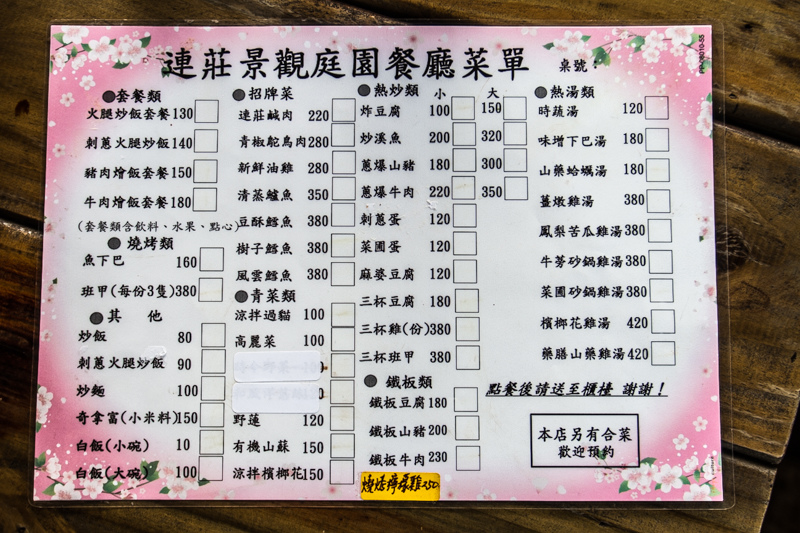 連莊景觀庭園餐廳菜單
桌號：
PP-09010-55
●套餐類
火腿炒飯套餐130
刺蔥火腿炒飯140
豬肉燴飯套餐150
牛肉燴飯套餐180
(套餐類含飲料、水果、點心)
●燒烤類
魚下巴 160
班甲(每份3隻)380
●其 他
炒飯 80
刺蔥火腿炒飯 90
炒麵 100
奇拿富(小米料)150
白飯(小碗) 10
白飯(大碗) 100
●招牌菜
連莊鹹肉 220
青椒鴕鳥肉280
新鮮油雞 280
清蒸鱸魚 350
豆酥鱈魚 380
樹子鱈魚 380
風雲鱈魚 380
●青菜類
涼拌過貓 100
高麗菜 100
野蓮 120
有機山蘇 150
涼拌檳榔花150
●熱炒類 小 大
炸豆腐 100 150
炒溪魚 200 320
蔥爆山豬 180 300
蔥爆牛肉 220 350
刺蔥蛋 120
菜圃蛋 120
麻婆豆腐 120
三杯豆腐 180
三杯雞(份)380
三杯班甲 380
●鐵板類
鐵板豆腐180
鐵板山豬200
鐵板牛肉230
●熱湯類
時蔬湯 120
味增下巴湯 180
山藥蛤蠣湯 180
薑燉雞湯 380
鳳梨苦瓜雞湯 380
牛蒡砂鍋雞湯380
菜圃砂鍋雞湯380
檳榔花雞湯 420
藥膳山藥雞湯420
點餐後請送至櫃檯 謝謝！
本店另有合菜
歡迎預約